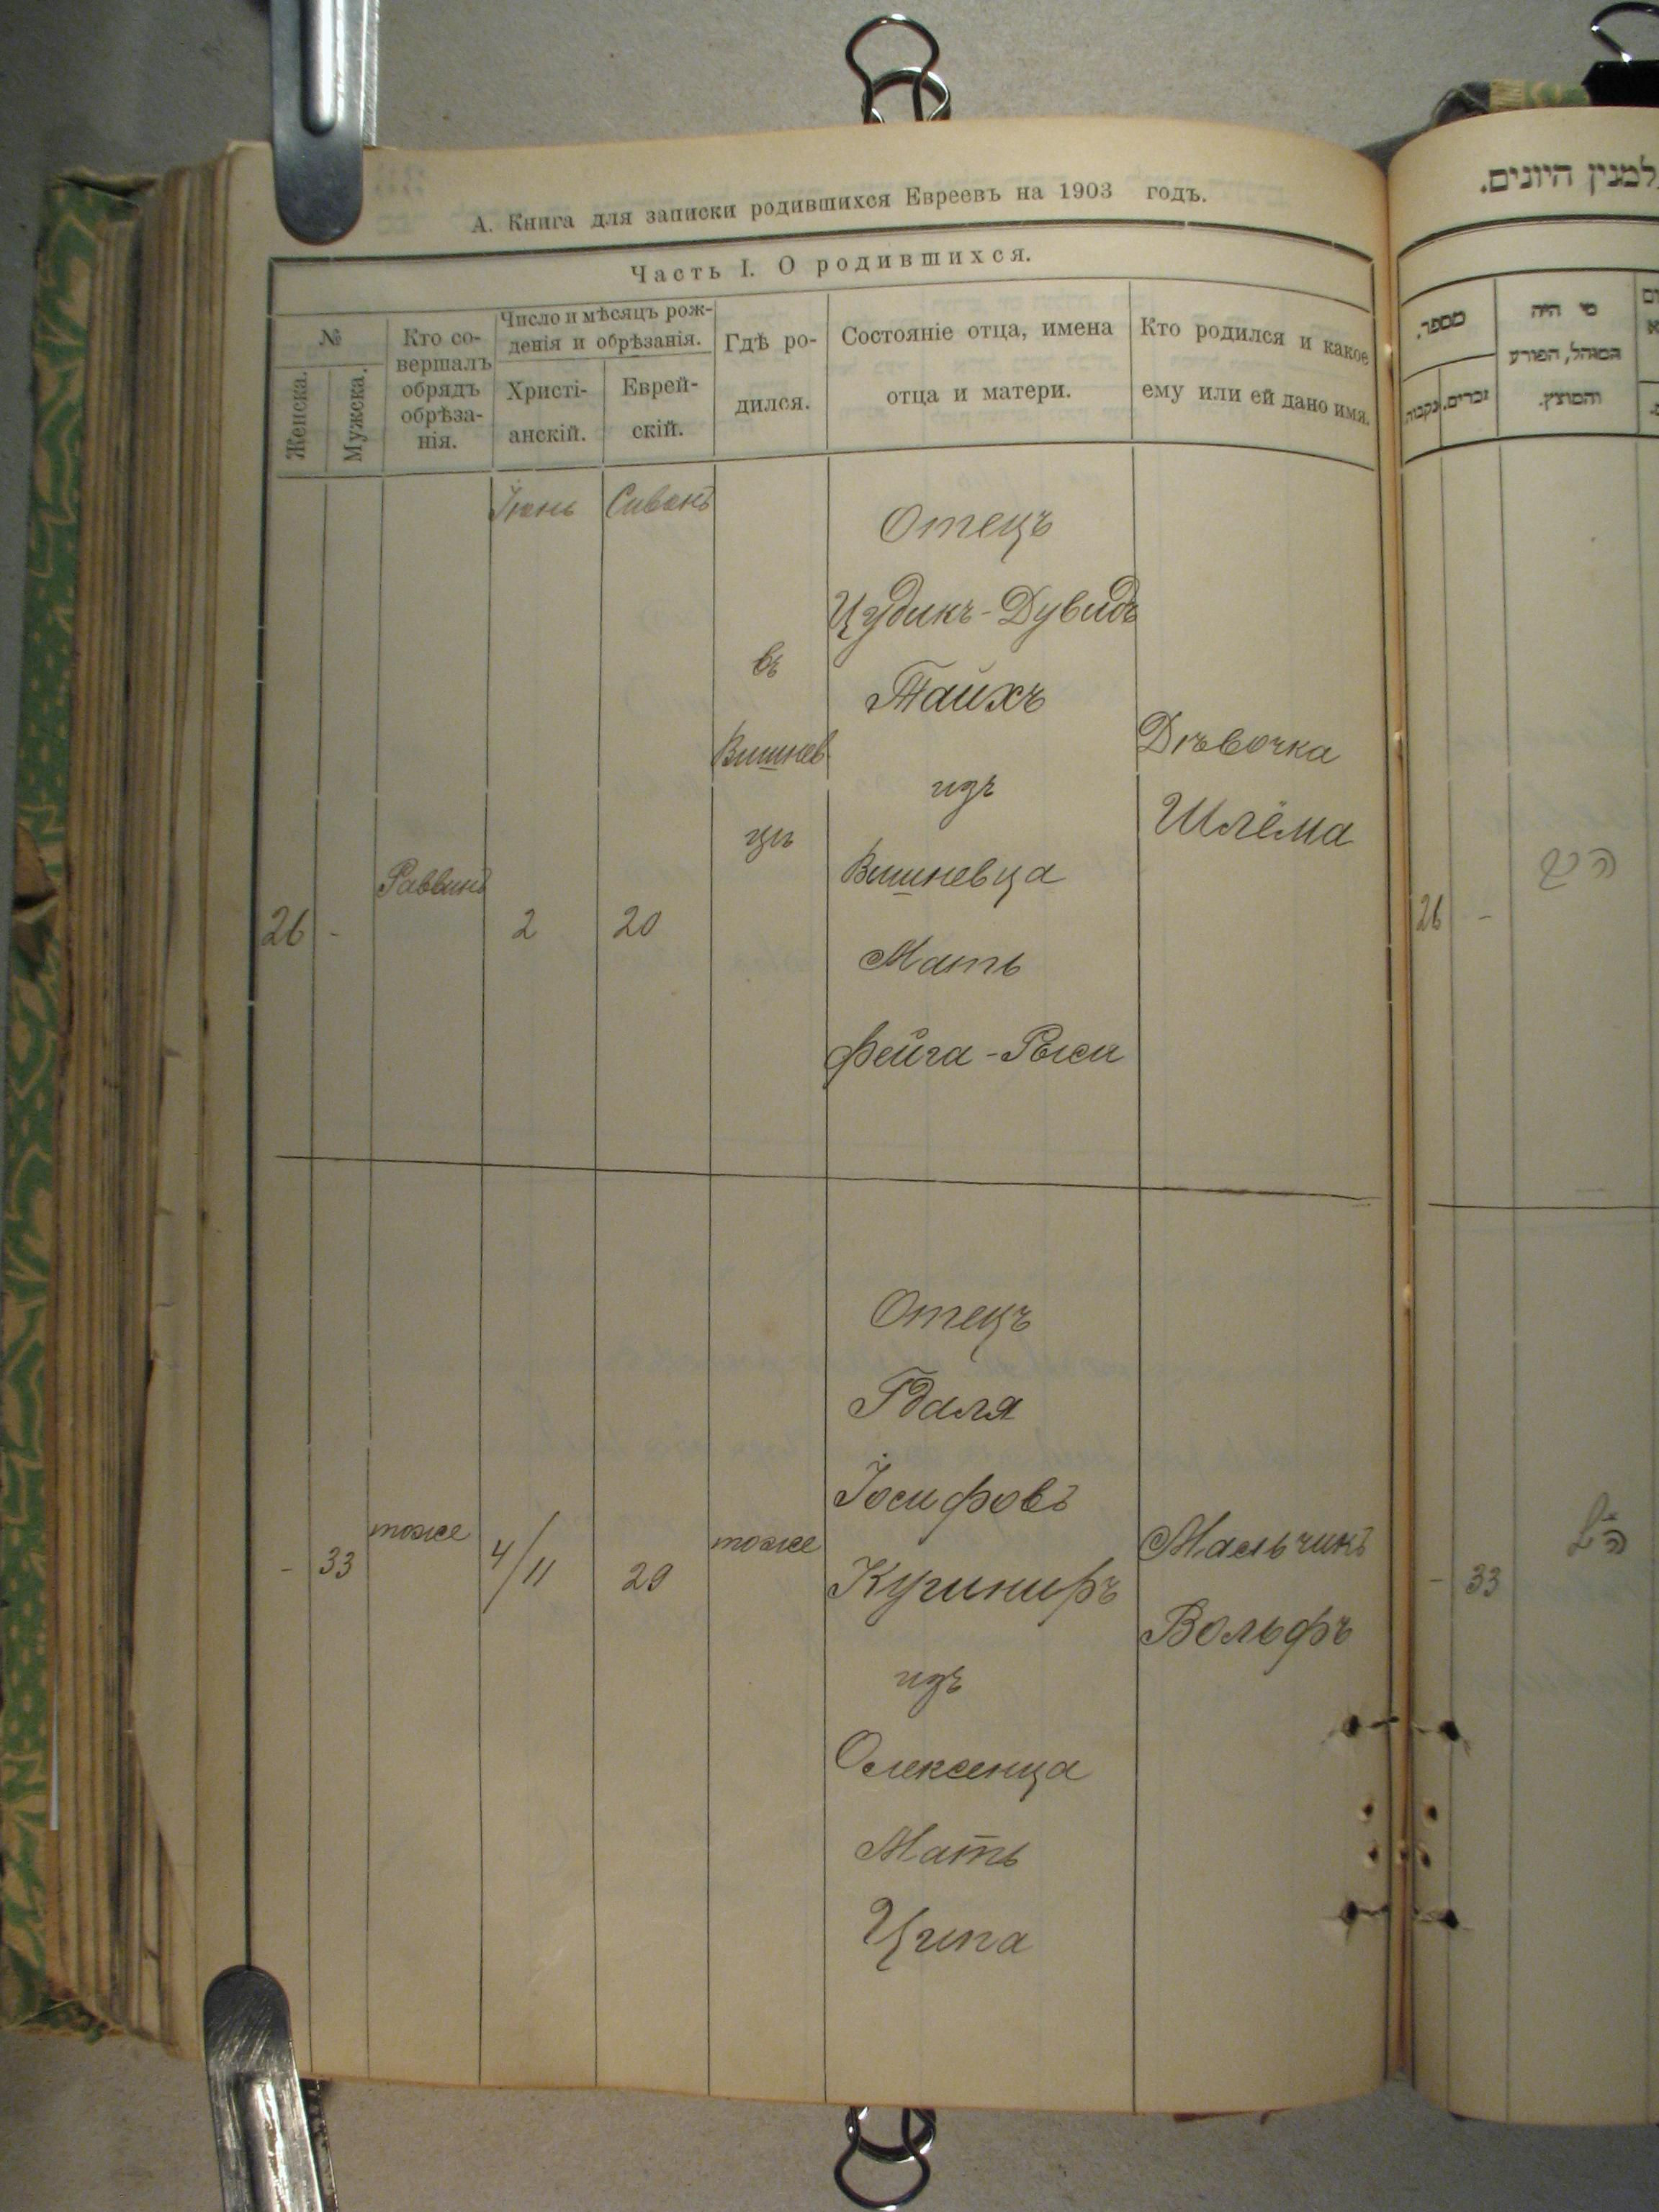 А. Книга для записки родившихся Евреевъ на 1903 годъ.
Часть I. О родившихся.
№
Женска.
Мужска.
Кто со-
вершалъ
обрядъ
обрѣза-
нія.
Число и мѣсяцъ рож-
денія и обрѣзанія.
Христі-
анскій.
Еврей-
скій.
Гдѣ ро-
дился.
Состояніе отца, имена
отца и матери.
Кто родился и какое
ему или ей дано имя.
26
-
Раввинъ
Іюнь
2
Сиванъ
20
въ
Вишнев
цѣ
Отецъ
Цудикъ-Дувидъ
Тайхъ
изъ
Вишневца
Мать
Фейга-Рыси
Дѣвочка
Шлёма
-
33
тоже
4/11
29
тоже
Отецъ
Гдаля
Іосифовъ
Кушниръ
изъ
Олексенца
Мать
Ципа
Мальчикъ
Вольфъ
למנין היונים.
מספר.
נקבות
זכרים.
מי היה
המוהל, הפורע
והמוצץ.
26
-
-
33